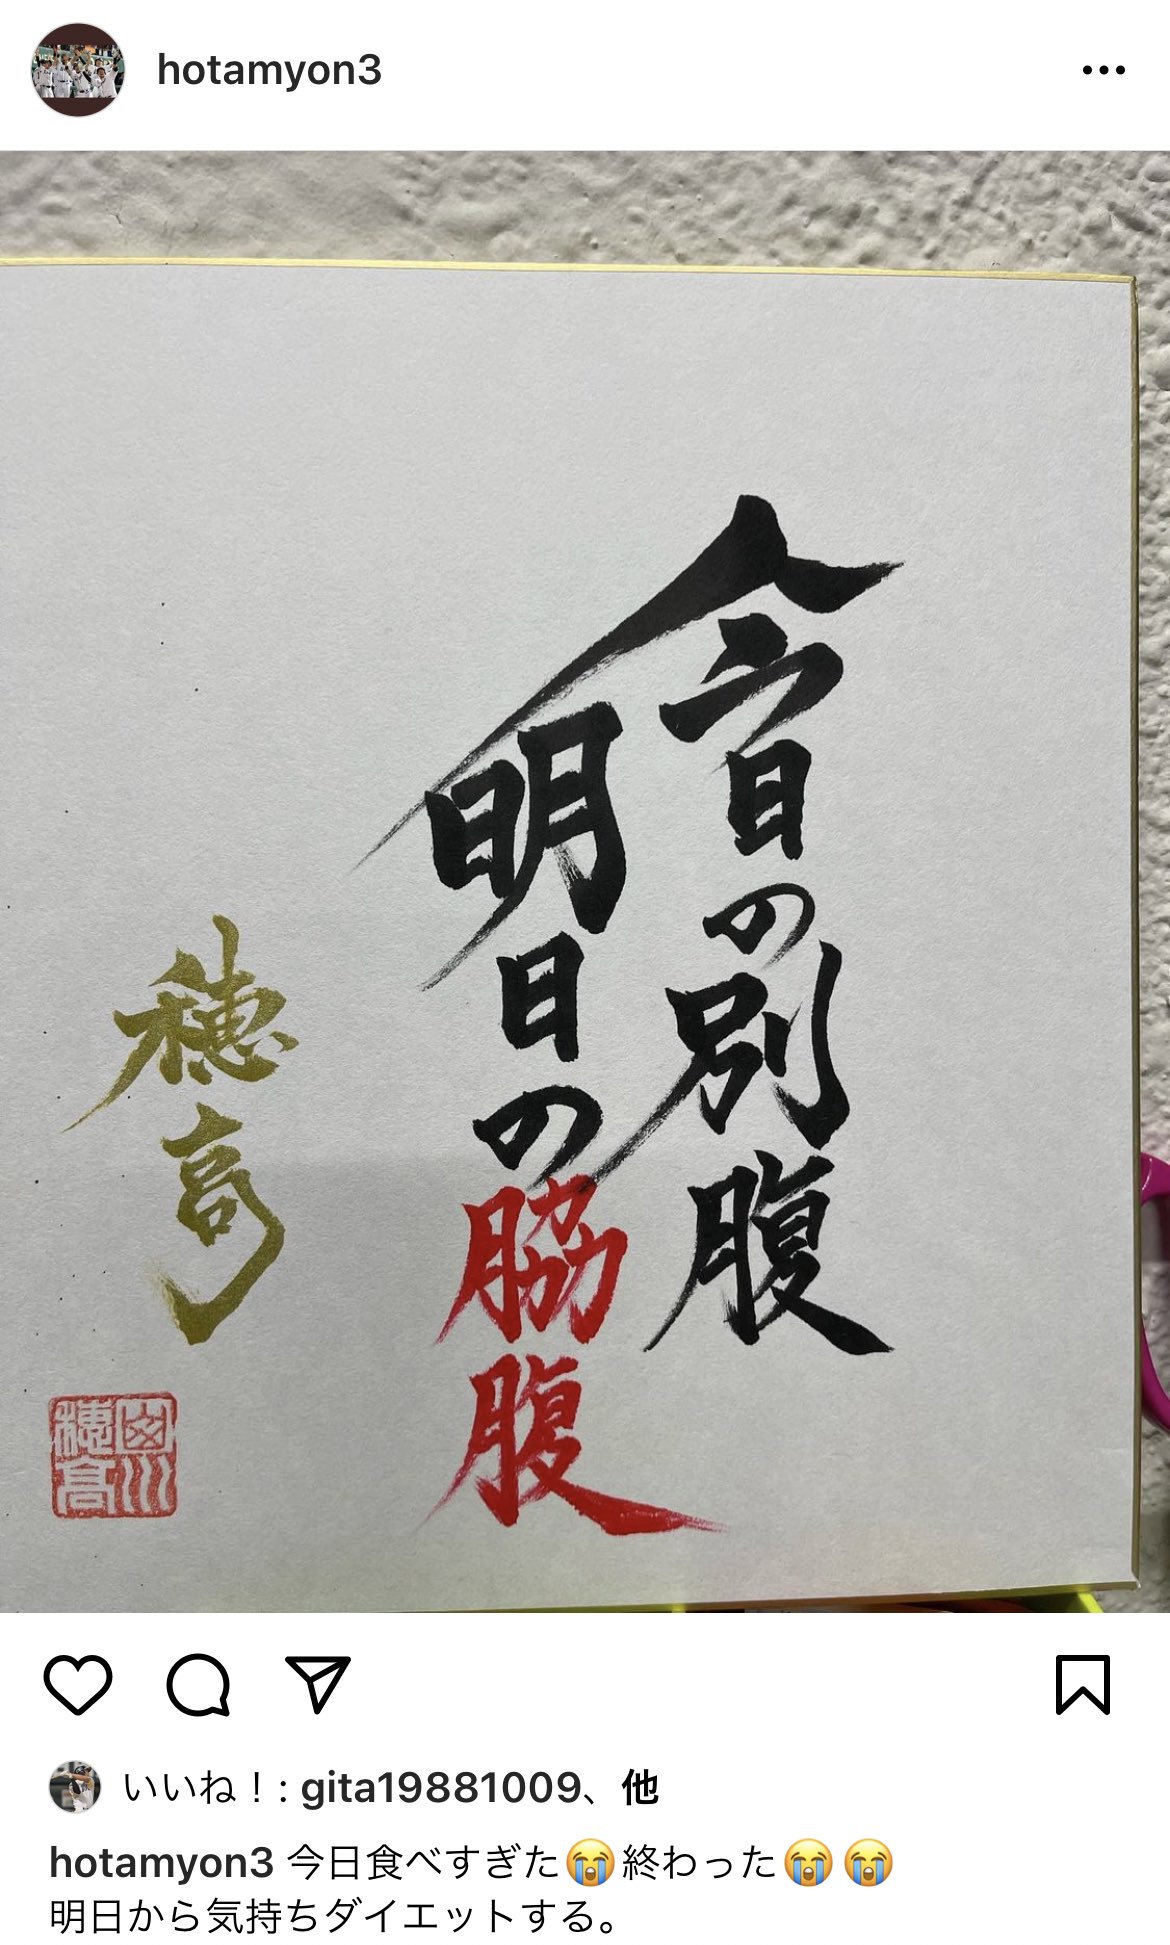 hotamyon3
今日の別腹
明日の脇腹
穂高
いいね！: gita19881009、他
hotamyon3 今日食べすぎた😭終わった😭😭
明日から気持ちダイエットする。